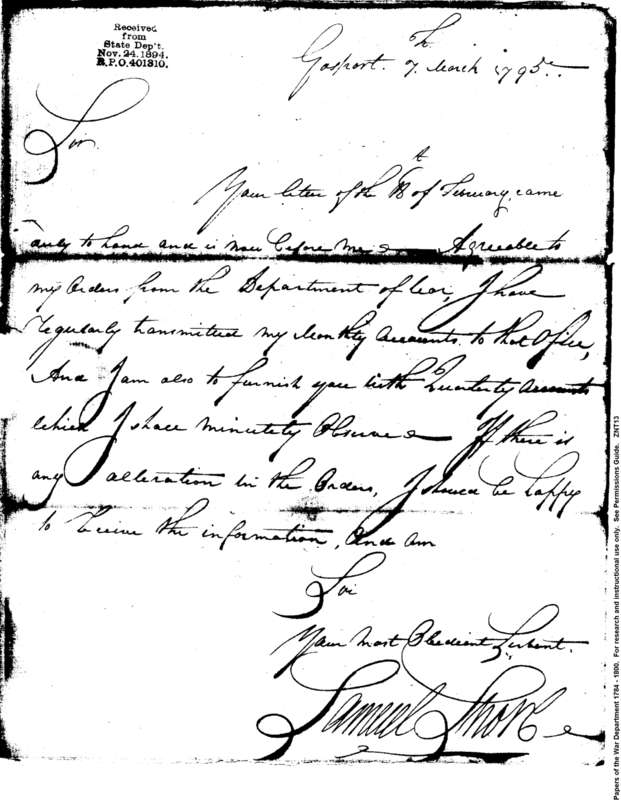 Received
from
State Dep't.
Nov. 24. 1894.
R.P.O. 401310.
Gosport. 7.th March 1795.
Sir
Your letter of the 18th of February, came
duly to hand and is now before me. Agreeable to
my Orders from the Department of War, I have
regularly transmitted my Monthly Accounts to that Office,
And I am also to furnish you with Quarterly Accounts
which I shall minutely Observe If there is
any alteration in the Orders, I should be happy
to receive the information, And am
Sir
Your Most Obedient Servant.
Samuel
Papers of the War Department 1784 - 1800. For research and instructional use only. See Permissions Guide. ZNT13